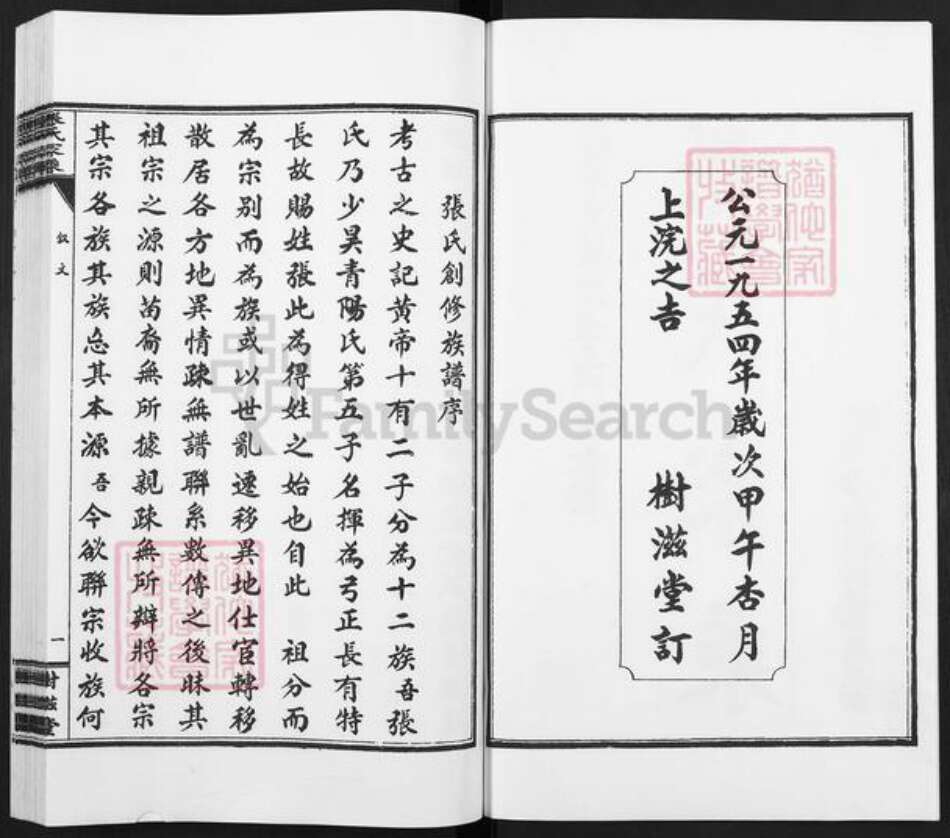 公元一九五四年歲次甲午杏月
上浣之吉 樹滋堂訂
張氏創修族譜序
考古之史記黃帝十有二子分為十二族吾張
氏乃少昊青陽氏第五子名揮為弓正長有特
長故賜姓張此為得姓之始也自此 祖分而
為宗別而為族或以世亂遷移異地仕宦轉移
散居各方地異情疎無譜聯系數傳之後昧其
祖宗之源則苗裔無所據親疎無所辯將各宗
其宗各族其族忘其本源吾今欲聯宗收族何
敘文
一
樹滋堂
FamilySearch